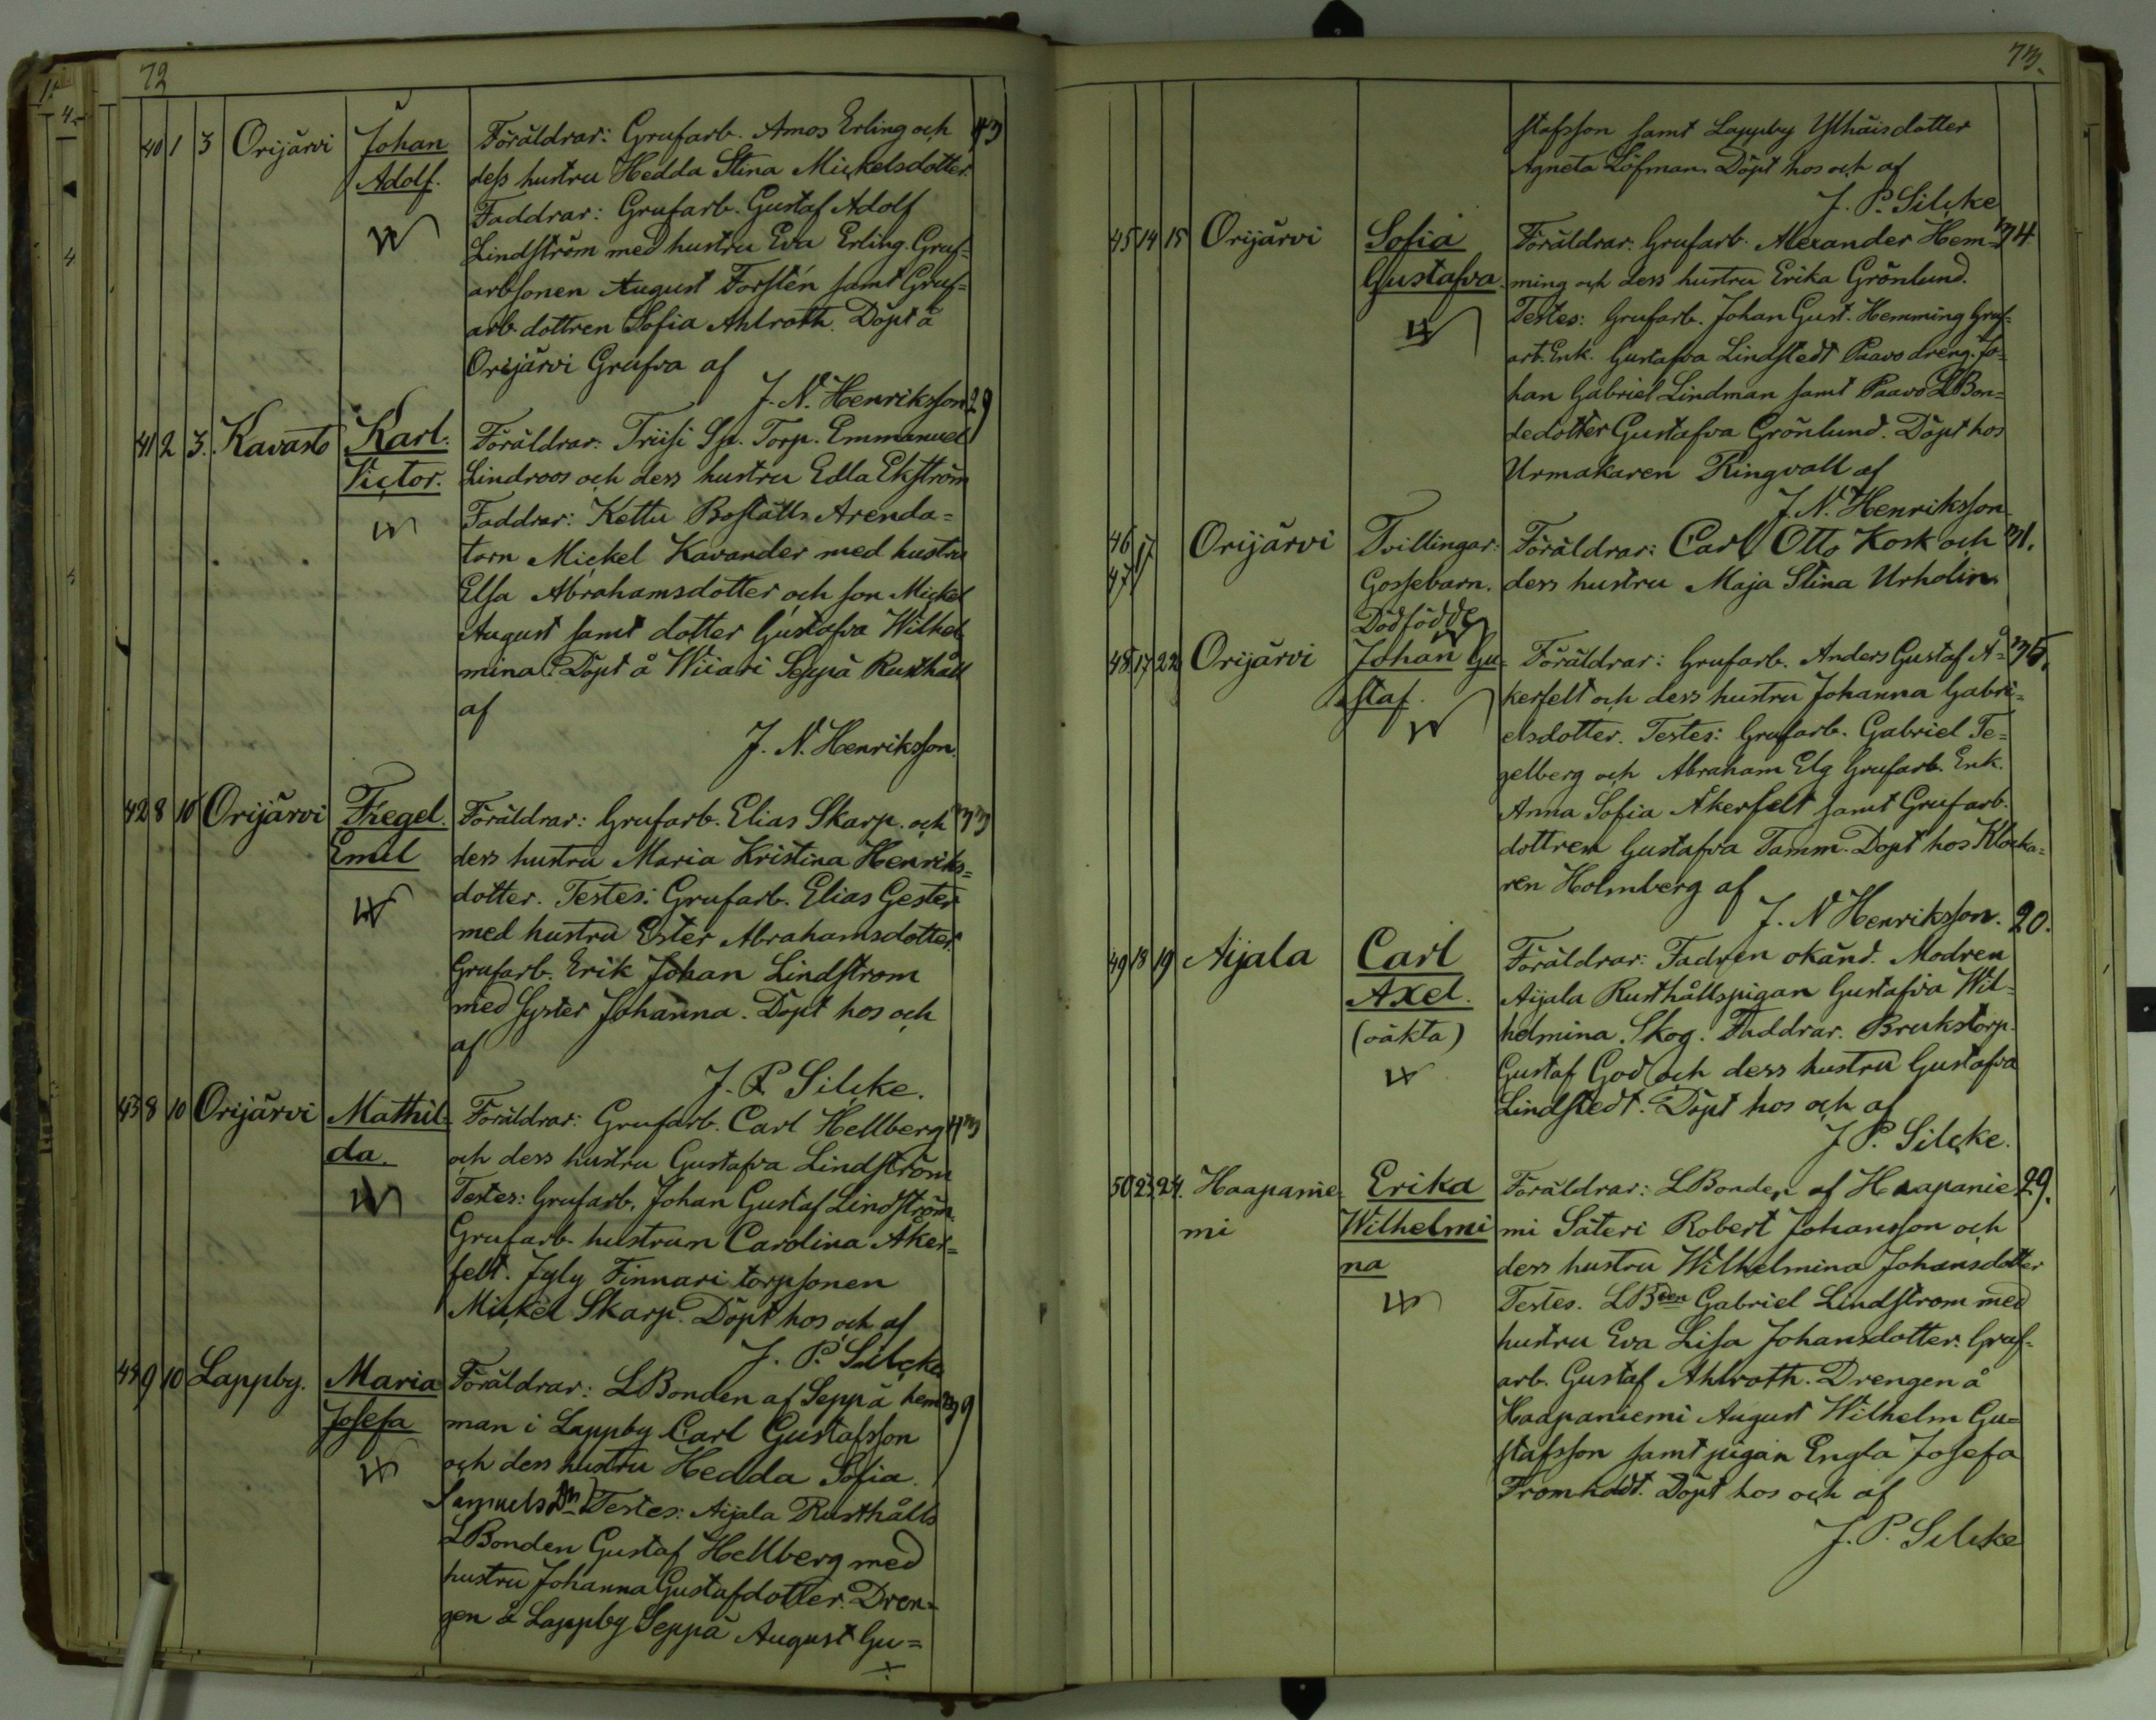 72
40 1 3 Orijärvi Johan Föräldrar: Grufarb. Amos Erling och 43
Adolf. dess hustru Hedda Stina Mickelsdotter.
Faddrar: Grufarb. Gustaf Adolf
Lindström med hustru Eva Erling. Gruf=
arbsonen August Forstén samt Gruf=
arb. dottren Sofia Ahlroth. Döpt å
Orijärvi Grufva af
J. N. Henriksson
41 2 3. Kavasto Karl. Föräldrar: Triisi Sp. Torp. Emmanuel 29
Victor. Lindroos och dess hustru Edla Ekström
Faddrar: Kettu Boställs Arenda=
torn Mickel Kavander med hustru
Elsa Abrahamsdotter och son Mickel
August samt dotter Gustafva Wilhel
mina. Döpt å Wiiari Seppä Rusthåll
af
J. N. Henriksson.
42 8 10 Orijärvi Fregel. Föräldrar: Grufarb. Elias Skarp. och 33
Emil dess hustru Maria Kristina Henriks=
dotter. Testes: Grufarb. Elias Gester
med hustru Ester Abrahamsdotter.
Grufarb. Erik Johan Lindstrom
med syster Johanna. Döpt hos och
af
J. P. Silcke.
43 8 10 Orijärvi Mathil= Föräldrar: Grufarb. Carl Hellberg 43
da. och dess hustru Gustafva Lindström
Testes: Grufarb. Johan Gustaf Lindström.
Grufarb. hustrun Carolina Åker=
felt. Jyly Finnari torpsonen
Mickel Skarp. Döpt hos och af
J. P. Silcke
44 9 10 Lappby. Maria Föräldrar: LBonden af Seppä hem= 39
Josefa man i Lappby Carl Gustafsson
och dess hustru Hedda Sofia
Samuelsdn Testes: Aijala Rusthålls
LBonden Gustaf Hellberg med
hustru Johanna Gustafdotter. Dren=
gen å Lappby Seppä August Gu=
73.
stafsson samt Lappby Ylhäisdotter
Agneta Löfman. Döpt hos och af
J. P. Silcke
45 14 15 Orijärvi Sofia Föräldrar: Grufarb. Alexander Hem= 34
Gustafva. ming och dess hustru Erika Grönlund.
Testes: Grufarb. Johan Gust. Hemming Gruf=
arb. Enk. Gustafva Lindstedt Paavo dreng. Jo=
han Gabriel Lindman samt Paavo LBon=
dedotter Gustafva Grönlund. Döpt hos
Urmakaren Ringvall af
J. N. Henriksson.
46 17 Orijärvi Tvillingar: Föräldrar: Carl Otto Kosk och 31.
47 Gossebarn. dess hustru Maja Stina Urholin.
Dödfödde
48 17 22 Orijärvi Johan Gu= Föräldrar: Grufarb. Anders Gustaf Å= 35.
staf. kerfelt och dess hustru Johanna Gabri=
elsdotter. Testes: Grufarb. Gabriel Te=
gelberg och Abraham Elg Grufarb. Enk.
Anna Sofia Åkerfelt samt Grufarb.
dottren Gustafva Tamm. Döpt hos Klocka=
ren Holmberg af
J. N Henriksson.
49 18 19 Aijala Carl Föräldrar: Fadren okänd. Modren 20.
Axel. Aijala Rusthållspigan Gustafva Wil=
(oäkta) helmina Skog. Faddrar. Brukstorp.
Gustaf God och dess hustru Gustafva
Lindstedt. Döpt hos och af
J. P. Silcke.
50 23 24. Haapanie= Erika Föräldrar: LBonden af Haapanie= 29.
mi Wilhelmi mi Säteri Robert Johansson och
na dess hustru Wilhelmina Johansdotter
Testes. LBden Gabriel Lindstrom med
hustru Eva Lisa Johansdotter. Gruf=
arb. Gustaf Ahlroth. Drengen å
Haapaniemi August Wilhelm Gu=
stafsson samt pigan Engla Josefa
Fromhodt. Döpt hos och af
J. P. Silcke